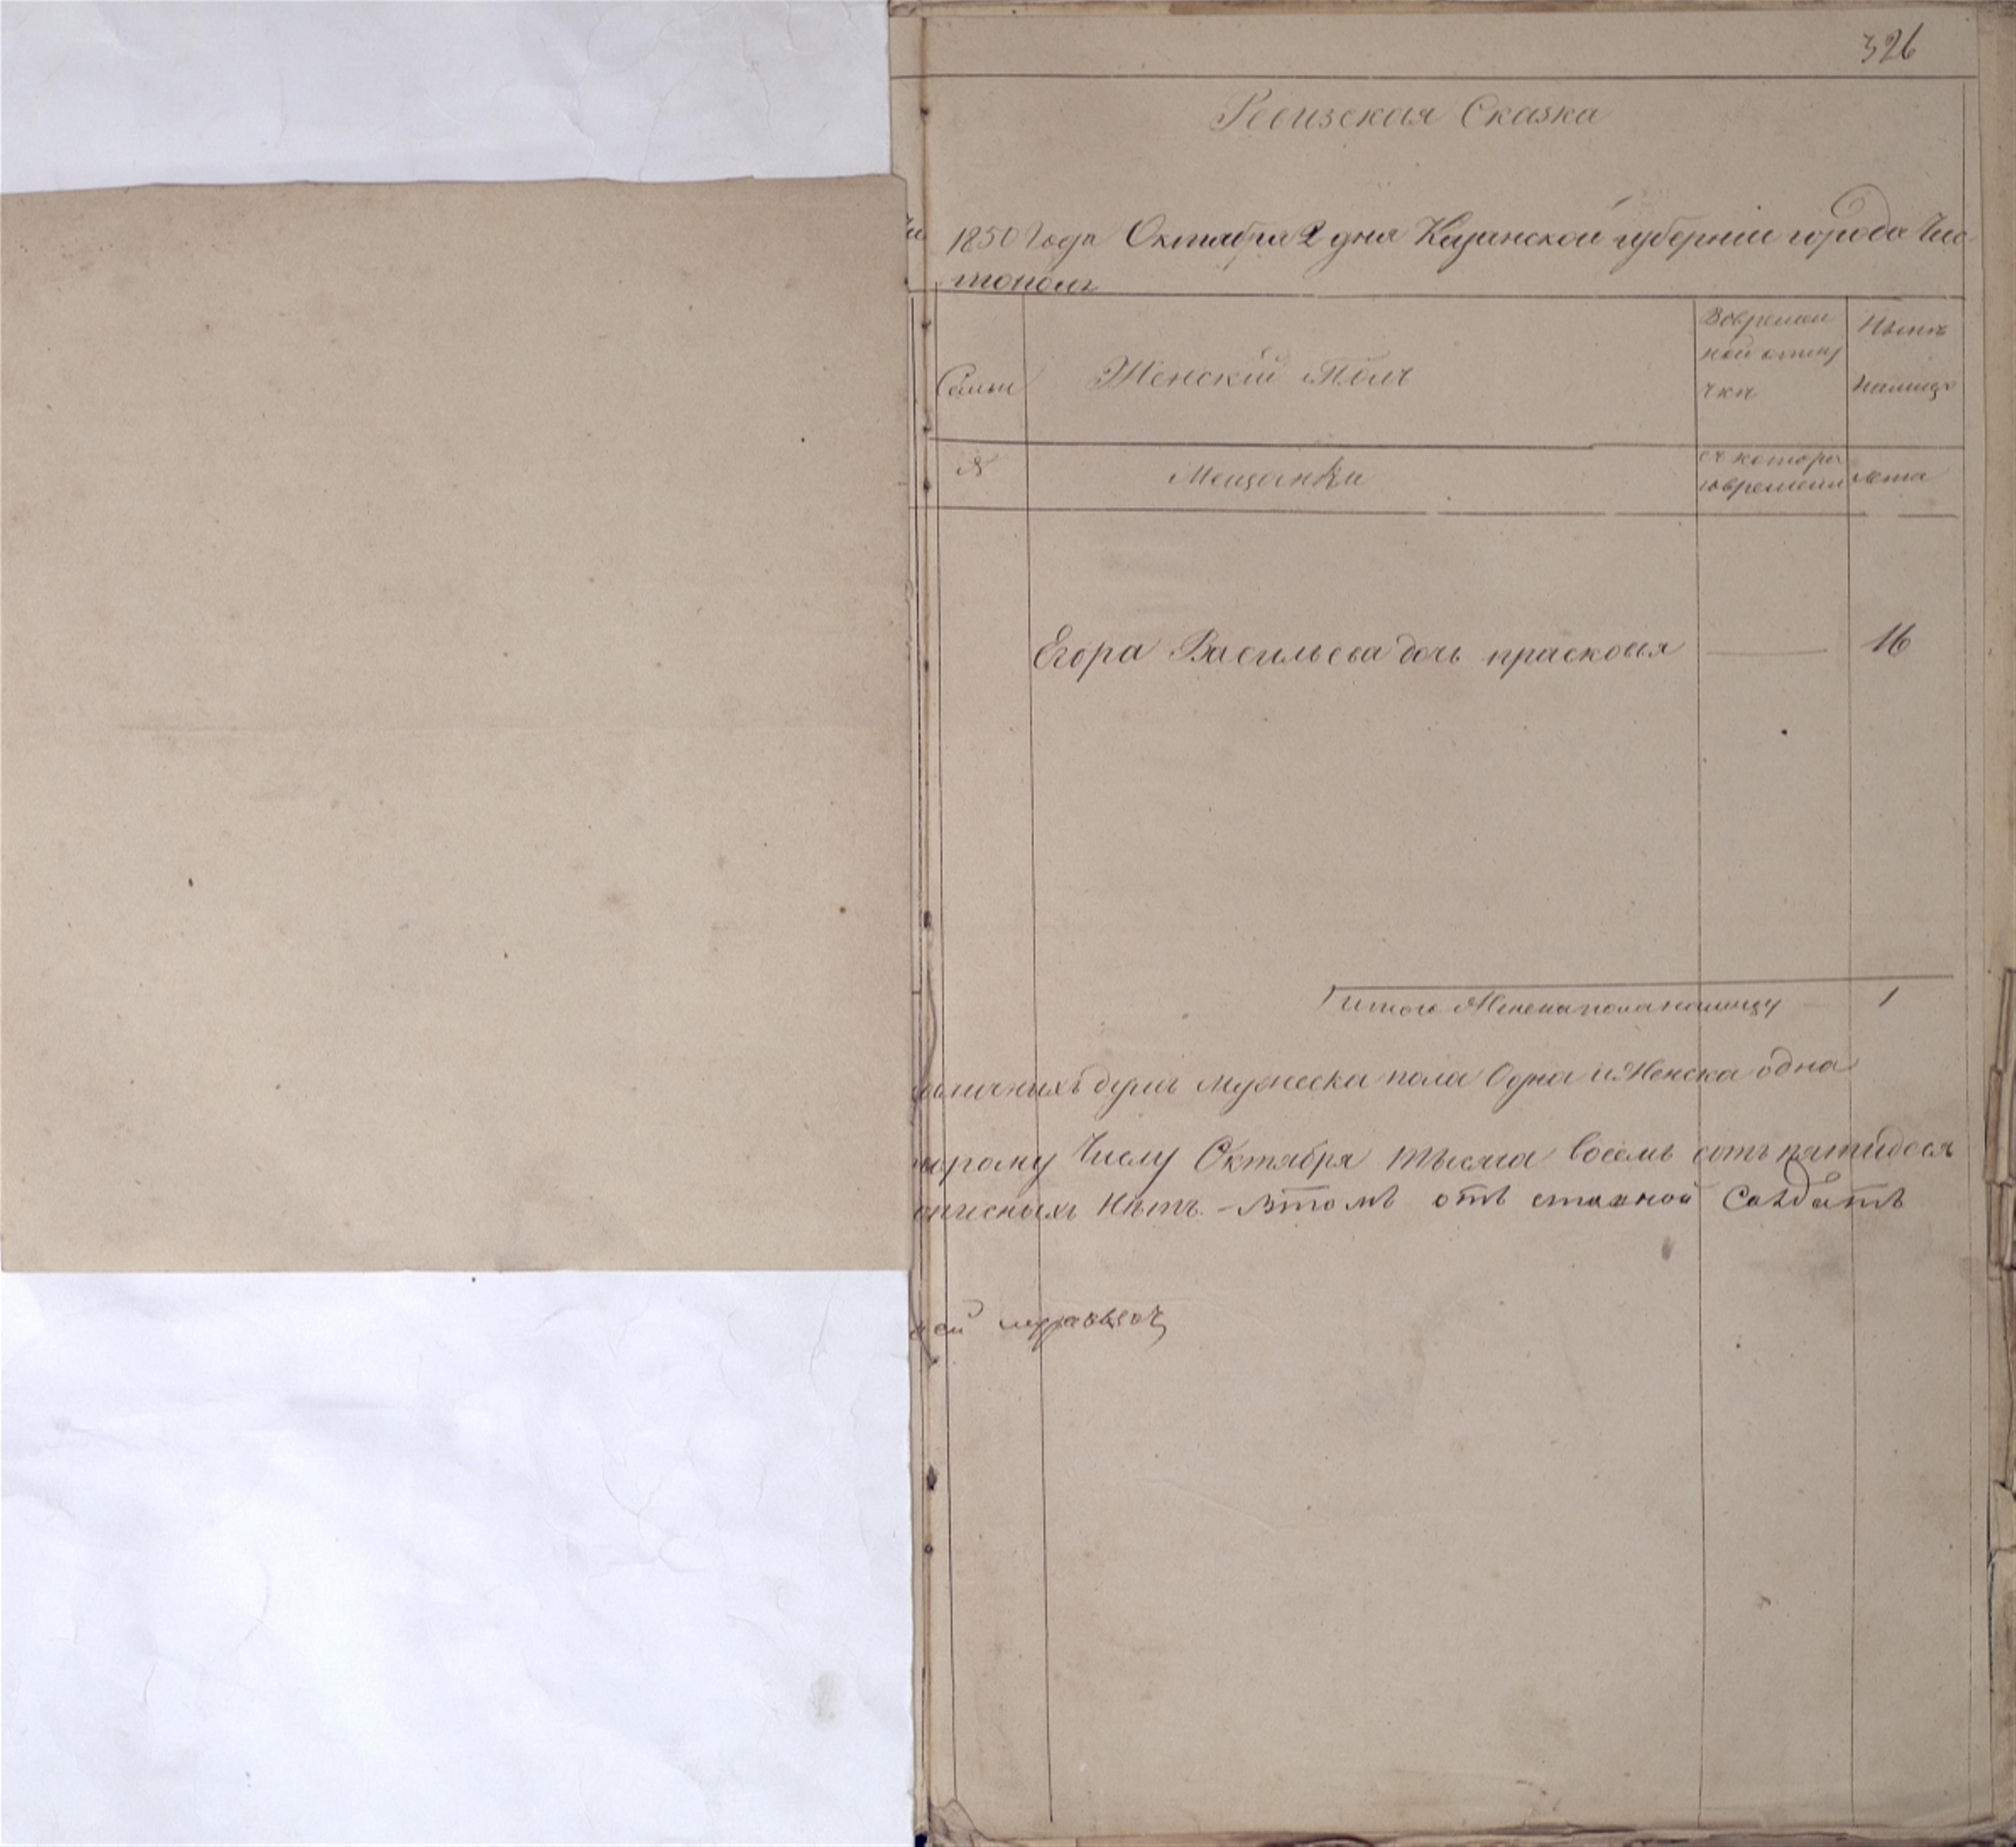 326
Ревизская Сказка
1850 Года Октября 2 дня Казанской губерніи города Чис
тополя
Семьи
Женскій Полъ
Вовремен
ной отлу
чкѣ
Нынѣ
налицо
№
Мещанки
съ котора
говремени
лета
Егора Васильева дочь прасковья 16
итого Женска пола налицу 1
наличныхъ душъ мужеска пола Одна и Женска одна
торому Числу Октября тысяча восемь сотъ пятидеся
описныхъ Нѣтъ.